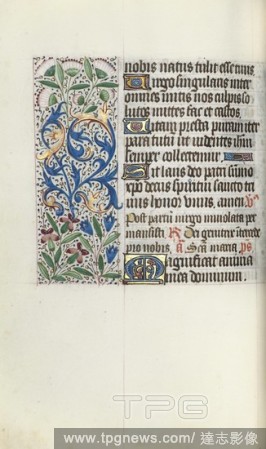 nobis natus tulit esse tuus.
Virgo singularis inter
omnes mitis nos culpis so
lutos mittes fac et castos.
Vitam presta puram iter
para tutu ut videntes ihm
semper colletemur.
Sit laus deo patri sumo
xpo decus spiritui sancto tri
nus honor unus. amen. V
Post partu virgo inviolata per
mansisti. R Dei genitrix intercede
pro nobis. A Sca maria PS
Magnificat anima
mea dominum.
TPG
www.tpgnews.com/達志影像